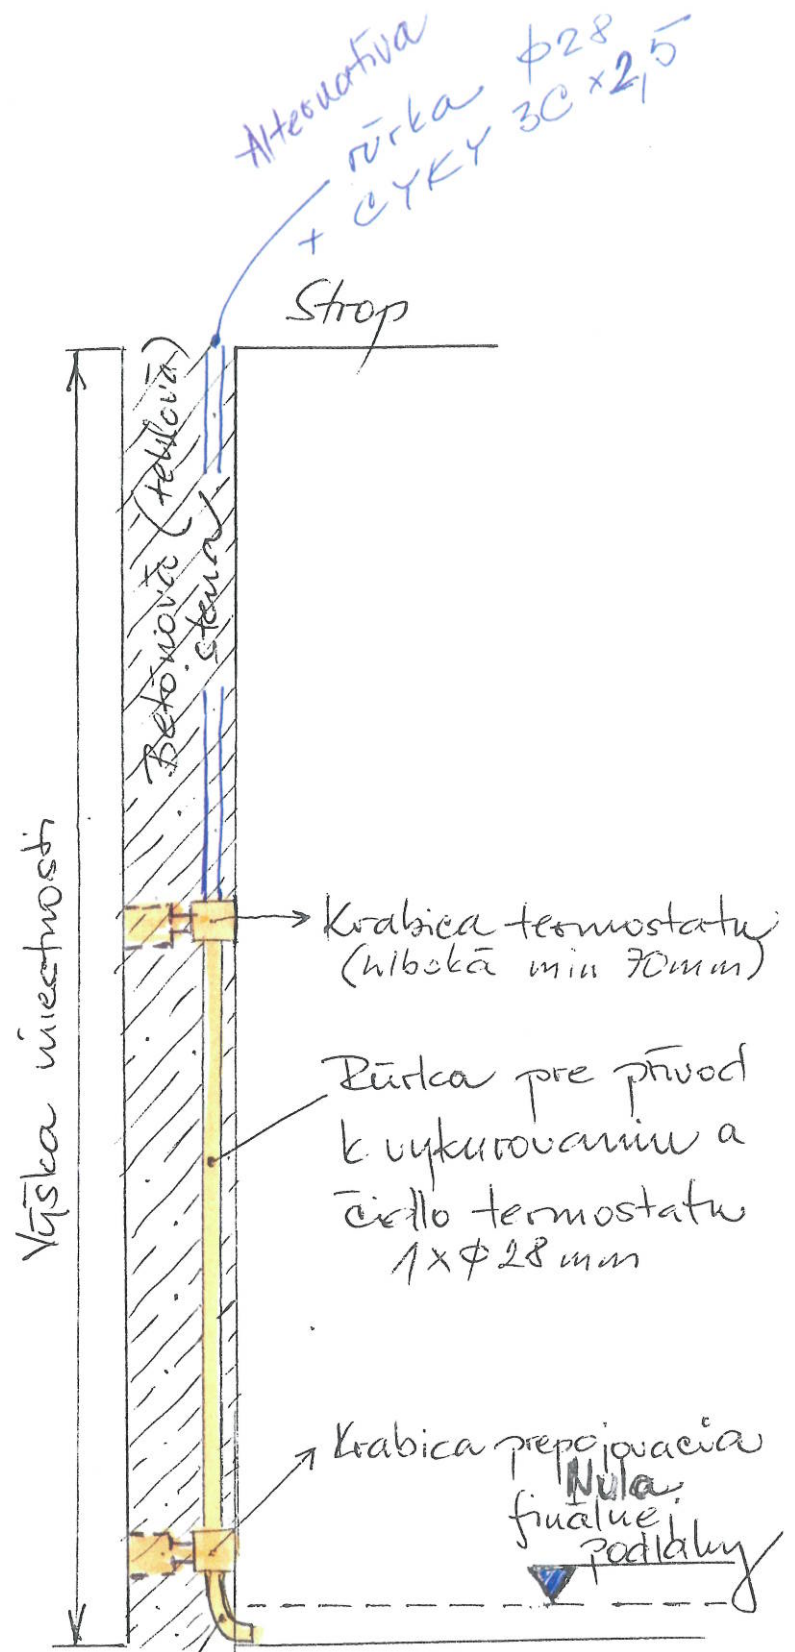 Alternatíva
rúrka ϕ28
+ CYKY 3C×2,5
Strop
Betónová (tehlová)
stena
Výška miestnosti
Krabica termostatu
(hlboká min 70mm)
Rúrka pre prívod
k vykurovaniu a
čidlo termostatu
1×ϕ28mm
Krabica prepojovacia
Nula
finálnej
podlahy